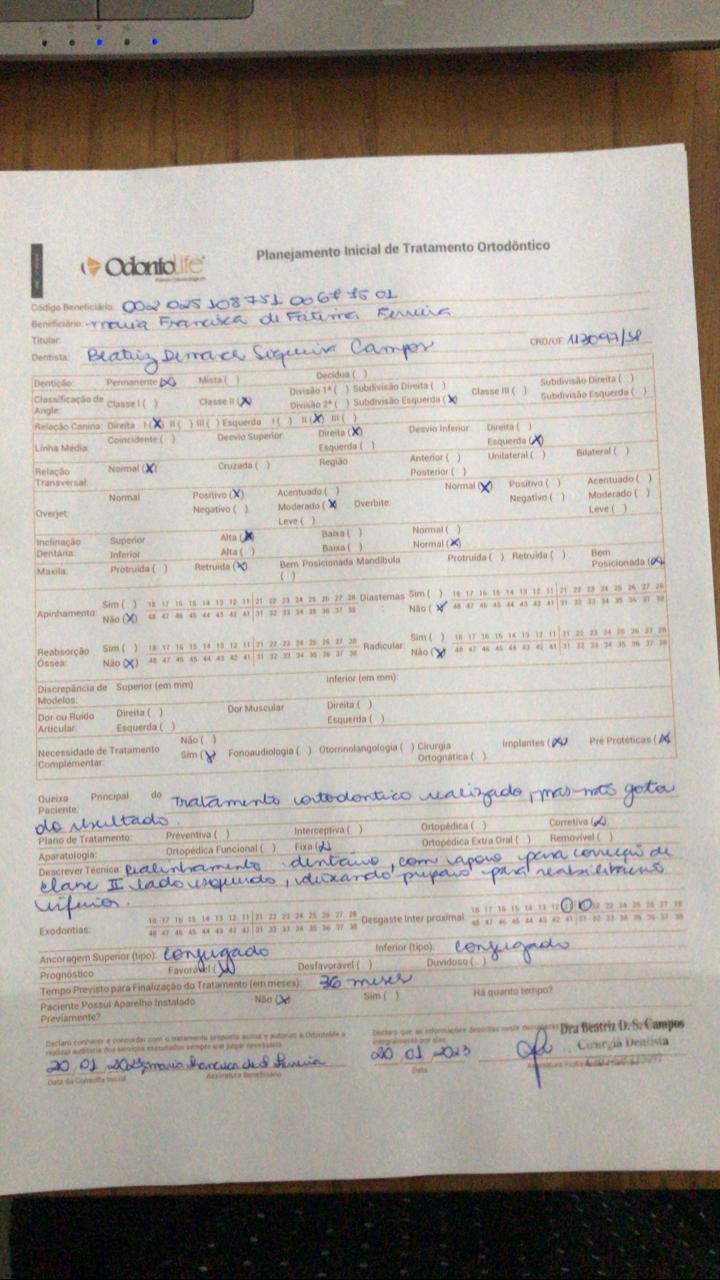 OdontoLife
Planejamento Inicial de Tratamento Ortodôntico
Código Beneficiário: 002 025 108751 0067 75 01
Beneficiário: Maria Francisca de Fátima Ferreira
Titular:
Dentista: Beatriz Siqueira Campos CRO/UF 113097/SP
Dentição: Permanente (X) Mista ( ) Decídua ( )
Classificação de Angle: Classe I ( ) Classe II (X) Divisão 1ª ( ) Subdivisão Direita ( ) Classe III ( ) Subdivisão Direita ( )
Divisão 2ª ( ) Subdivisão Esquerda (X) Subdivisão Esquerda ( )
Relação Canina: Direita I (X) II ( ) III ( ) Esquerda I ( ) II (X) III ( )
Linha Média: Coincidente ( ) Desvio Superior: Direita (X) Desvio Inferior: Direita ( )
Esquerda ( ) Esquerda (X)
Relação Transversal: Normal (X) Cruzada ( ) Região Anterior ( ) Unilateral ( ) Bilateral ( )
Posterior ( )
Overjet: Normal Positivo (X) Acentuado ( ) Overbite: Normal (X) Positivo ( ) Acentuado ( )
Negativo ( ) Moderado (X) Negativo ( ) Moderado ( )
Leve ( ) Leve ( )
Inclinação Dentária: Superior Alta (X) Baixa ( ) Normal ( )
Inferior Alta ( ) Baixa ( ) Normal (X)
Maxila: Protruida ( ) Retruida (X) Bem Posicionada ( ) Mandíbula Protruida ( ) Retruida ( ) Bem Posicionada (X)
Apinhamento: Sim ( ) 18 17 16 15 14 13 12 11 21 22 23 24 25 26 27 28 Diastemas Sim ( ) 18 17 16 15 14 13 12 11 21 22 23 24 25 26 27 28
Não (X) 48 47 46 45 44 43 42 41 31 32 33 34 35 36 37 38 Não (X) 48 47 46 45 44 43 42 41 31 32 33 34 35 36 37 38
Reabsorção Óssea: Sim ( ) 18 17 16 15 14 13 12 11 21 22 23 24 25 26 27 28 Radicular: Sim ( ) 18 17 16 15 14 13 12 11 21 22 23 24 25 26 27 28
Não (X) 48 47 46 45 44 43 42 41 31 32 33 34 35 36 37 38 Não (X) 48 47 46 45 44 43 42 41 31 32 33 34 35 36 37 38
Discrepância de Modelos: Superior (em mm) Inferior (em mm):
Dor ou Ruído Articular: Direita ( ) Dor Muscular Direita ( )
Esquerda ( ) Esquerda ( )
Necessidade de Tratamento Complementar: Não ( )
Sim (X) Fonoaudiologia ( ) Otorrinolangologia ( ) Cirurgia Ortognática ( ) Implantes (X) Pré Protéticas (X)
Queixa Principal do Paciente: Tratamento ortodontico realizado, mas não gostou
do resultado.
Plano de Tratamento: Preventiva ( ) Interceptiva ( ) Ortopédica ( ) Corretiva (X)
Aparatologia: Ortopédica Funcional ( ) Fixa (X) Ortopédica Extra Oral ( ) Removível ( )
Descrever Técnica: Realinhamento dentário, com apoio para correção de
classe II lado esquerdo, deixando preparo para
inferior.
Exodontias: 18 17 16 15 14 13 12 11 21 22 23 24 25 26 27 28 Desgaste Inter proximal: 18 17 16 15 14 13 12 11 21 22 23 24 25 26 27 28
48 47 46 45 44 43 42 41 31 32 33 34 35 36 37 38 48 47 46 45 44 43 42 41 31 32 33 34 35 36 37 38
Ancoragem Superior (tipo): conjugado Inferior (tipo): conjugado
Prognóstico Favorável (X) Desfavorável ( ) Duvidoso ( )
Tempo Previsto para Finalização do Tratamento (em meses): 36 meses
Paciente Possui Aparelho Instalado Previamente? Não (X) Sim ( ) Há quanto tempo?
Declaro conhecer e concordar com o tratamento proposto acima e autorizo a OdontoLife a
realizar auditoria dos serviços executados sempre que julgar necessário.
Declaro que as informações descritas neste
20 01 2023 Maria Francisca de F Ferreira
Data da Consulta Inicial Assinatura Beneficiário
20 01 2023
Data
Dra Beatriz D. S. Campos
Cirurgiã Dentista